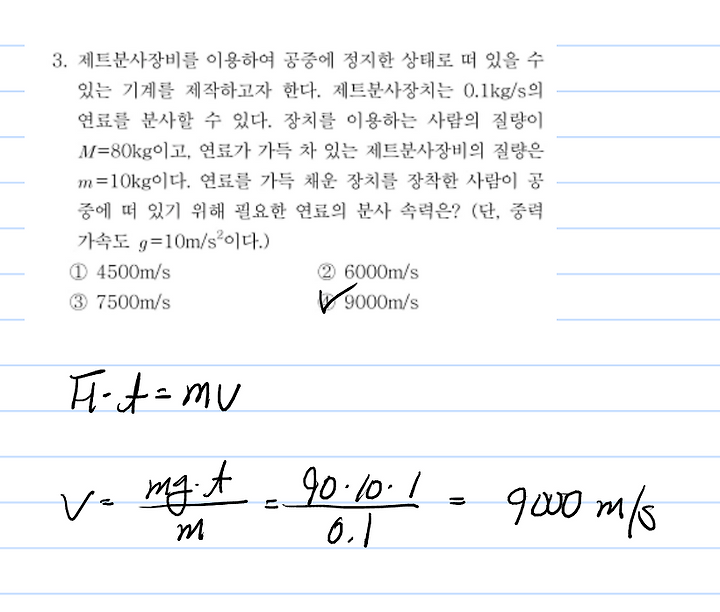 3. 제트분사장비를 이용하여 공중에 정지한 상태로 떠 있을 수
있는 기계를 제작하고자 한다. 제트분사장치는 0.1kg/s의
연료를 분사할 수 있다. 장치를 이용하는 사람의 질량이
M=80kg이고, 연료가 가득 차 있는 제트분사장비의 질량은
m=10kg이다. 연료를 가득 채운 장치를 장착한 사람이 공
중에 떠 있기 위해 필요한 연료의 분사 속력은? (단, 중력
가속도 g=10m/s²이다.)
① 4500m/s ② 6000m/s
③ 7500m/s ④ 9000m/s
F·t = mv
V = mg·t / m = 90·10·1 / 0.1 = 9000 m/s